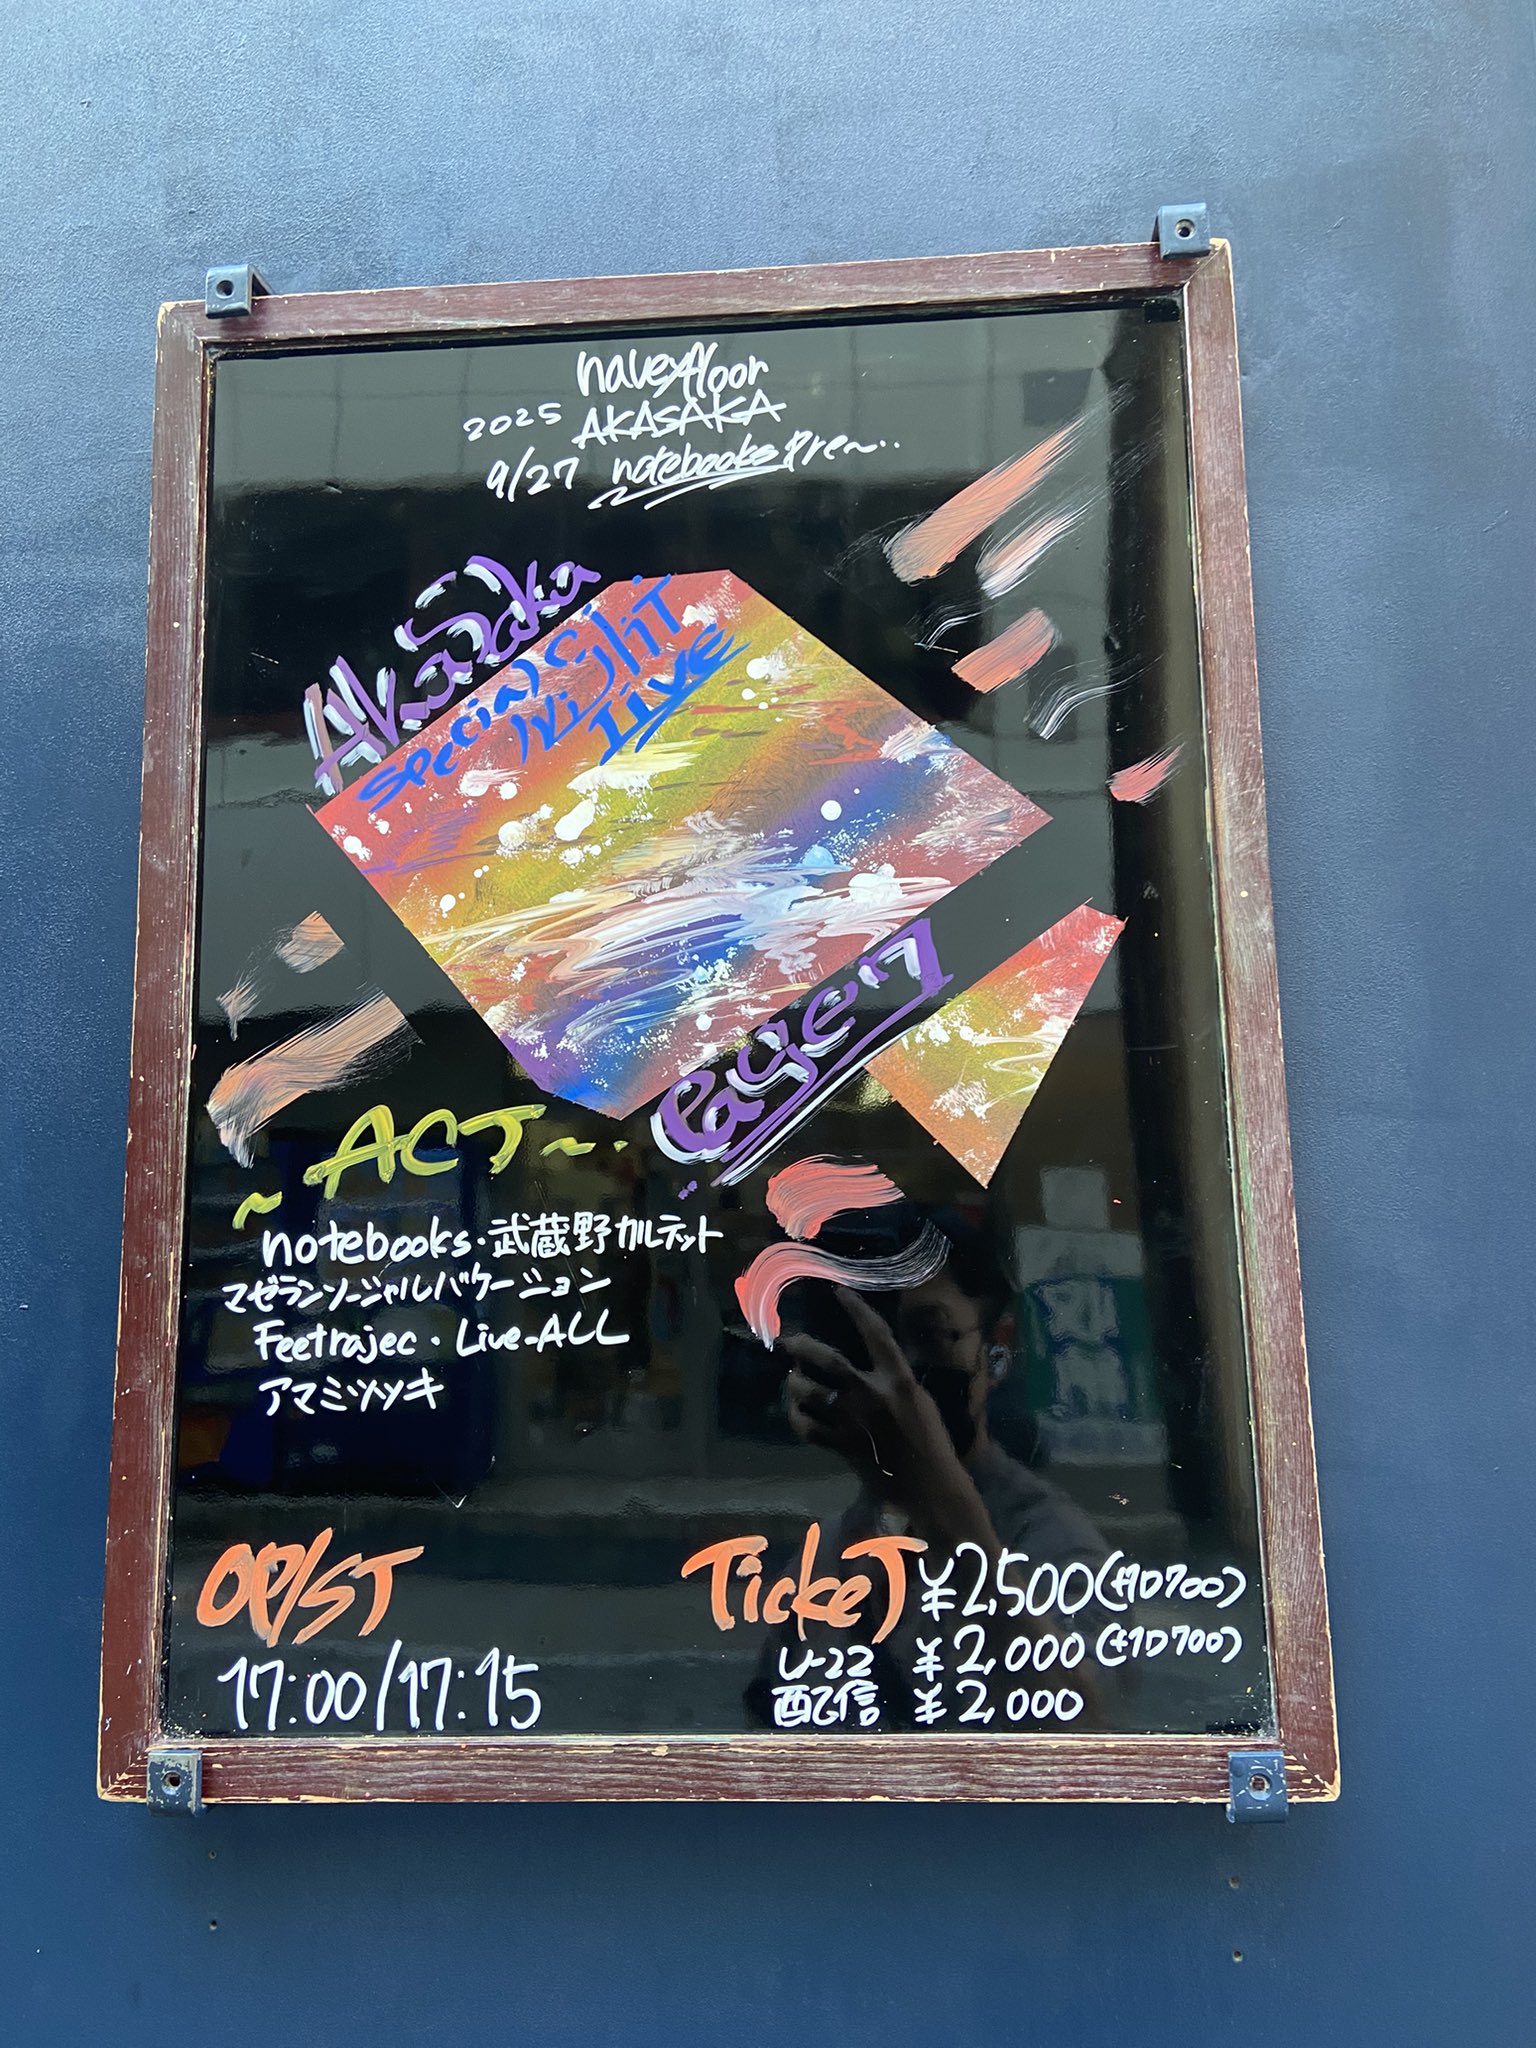 navey floor
2025 AKASAKA
9/27 notebooks Pre~..
Akasaka
Special
Night
Live
Page.7
~ACT~.
notebooks・武蔵野カルテット
マゼランソーシャルバケーション
Feetrajec・Live-ALL
アマミツツキ
OP/ST
17:00/17:15
Ticket ¥2,500(+1D700)
U-22 ¥2,000(+1D700)
配信 ¥2,000